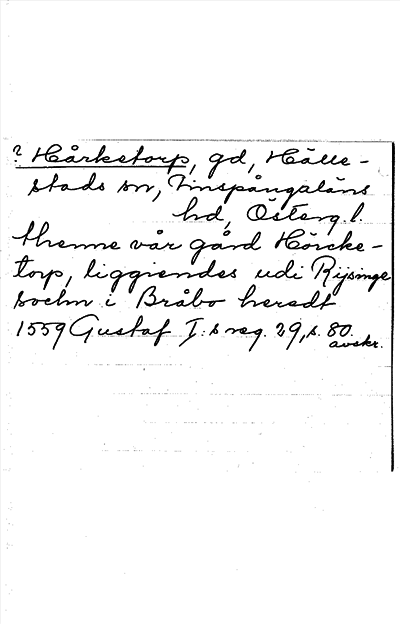 ? Hårketorp, gd, Hälle-
stads sn, Finspångaläns
hd, Österg. l.
thenne vår gård Hörcke-
torp, liggiendes udi Rijsinge
sochn i Bråbo heredt
1559 Gustaf I:s reg. 29, s. 80.
avskr.